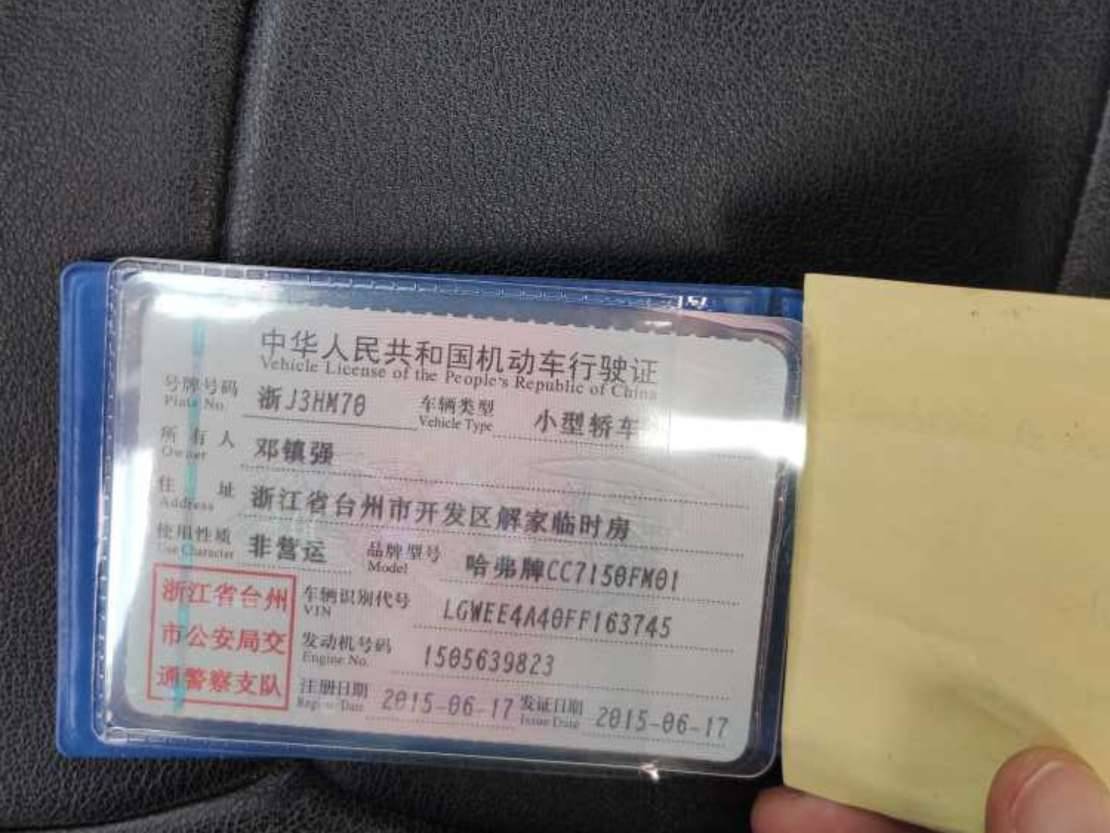 中华人民共和国机动车行驶证
Vehicle License of the People's Republic of China
号牌号码 浙J3HM70 车辆类型 小型轿车
Plate No. Vehicle Type
所有人 邓镇强
Owner
住址 浙江省台州市开发区解家临时房
Address
使用性质 非营运 品牌型号 哈弗牌CC7150FM01
Use Character Model
浙江省台州
市公安局交
通警察支队
车辆识别代号 LGWEE4A40FF163745
VIN
发动机号码 1505639823
Engine No.
注册日期 2015-06-17 发证日期 2015-06-17
Register Date Issue Date